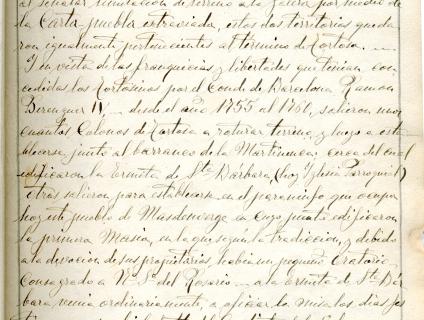 al señalar limitacion de terreno a la Galera por medio de
la Carta puebla estraviada, estos dos territorios queda
ron igualmente pertenecientes al término de Tortosa.
Y en vista de las franquicias y libertades que tenian con
cedidas los tortosinos por el Conde de Barcelona Ramon
Berenguer IV, desde el año 1755 al 1760, salieron unos
cuantos Colonos de Tortosa a roturar terreno, y luego a esta
blecerse junto al barranco de la Martinenca, cerca del cual
edificaron la Ermita de Sta Bárbara, (hoy Iglesia Parroquial)
otros salieron para establecerse en el para que ocupa
hoy este pueblo de Masdenverge en cuyo punto edificaron
la primera Masia, en la que segun la tradiccion, y debido
a la devocion de sus propietarios habia un pequeño Oratorio
Consagrado a Na Sa del Rosario a la ermita de Sta Bár
bara, venia ordinariamente, a oficiar la misa los dias fes